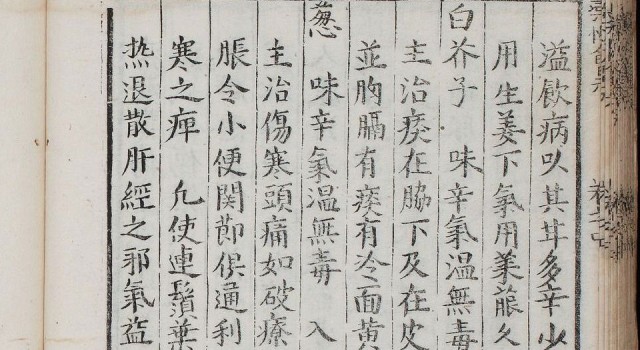 溢飲病以其甘多辛少
用生姜下氣用萊菔久
白芥子 味辛氣溫無毒
主治痰在脇下及在皮
並胸膈有痰有冷面黃
葱 味辛氣溫無毒 入
主治傷寒頭痛如破療
脹令小便関節俱通利
寒之痺 凢使連鬚葉
热退散肝經之邪氣益